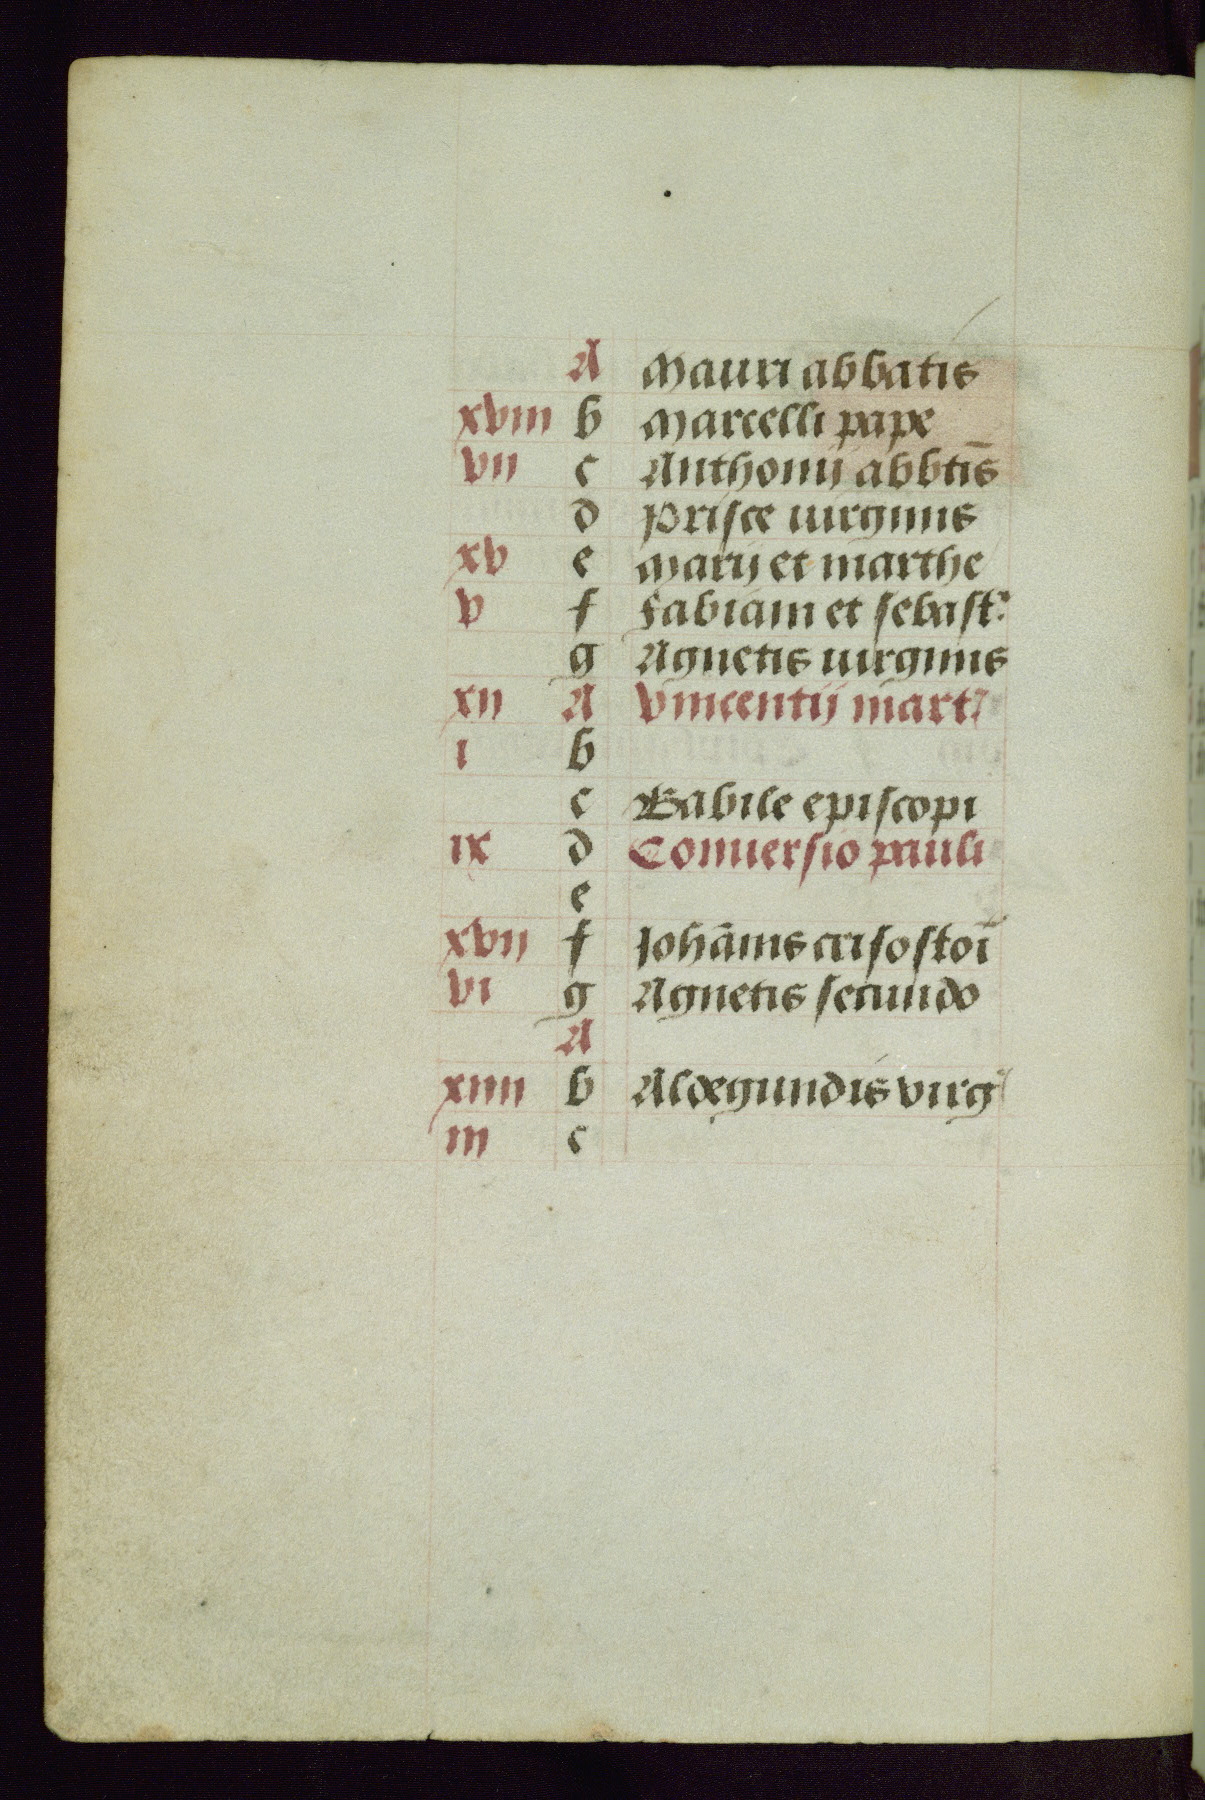 A Mauri abbatis
xviii b Marcelli pape
vii c Anthonij abbtis̄
d Prisce uirginis
xv e Marij et marthe
v f Fabiani et sebast:
g Agnetis uirginis
xii A Vincentij mart
i b
c Babile episcopi
ix d Conuersio pauli
e
xvii f Johānis crisostoī
vi g Agnetis secundo
A
xiiii b Aldegundis virg
iii c